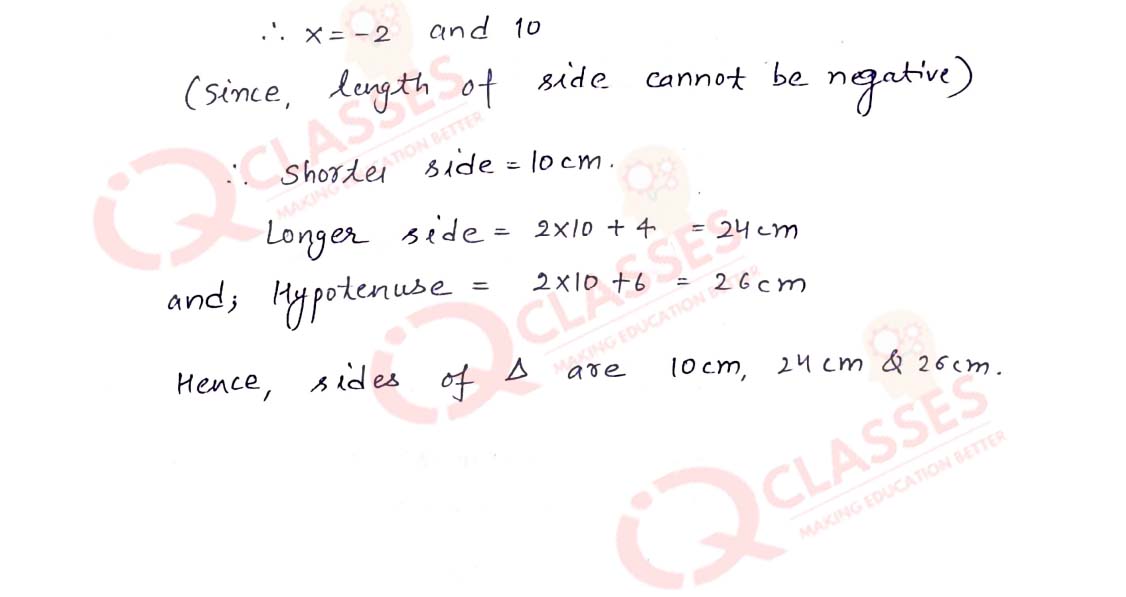 ∴ x = -2 and 10
(since, length of side cannot be negative)
∴ Shorter side = 10cm.
Longer side = 2×10 + 4 = 24cm
and; Hypotenuse = 2×10 +6 = 26cm
Hence, sides of Δ are 10cm, 24cm & 26cm.
CLASSES
MAKING EDUCATION BETTER
CLASSES
MAKING EDUCATION BETTER
CLASSES
MAKING EDUCATION BETTER